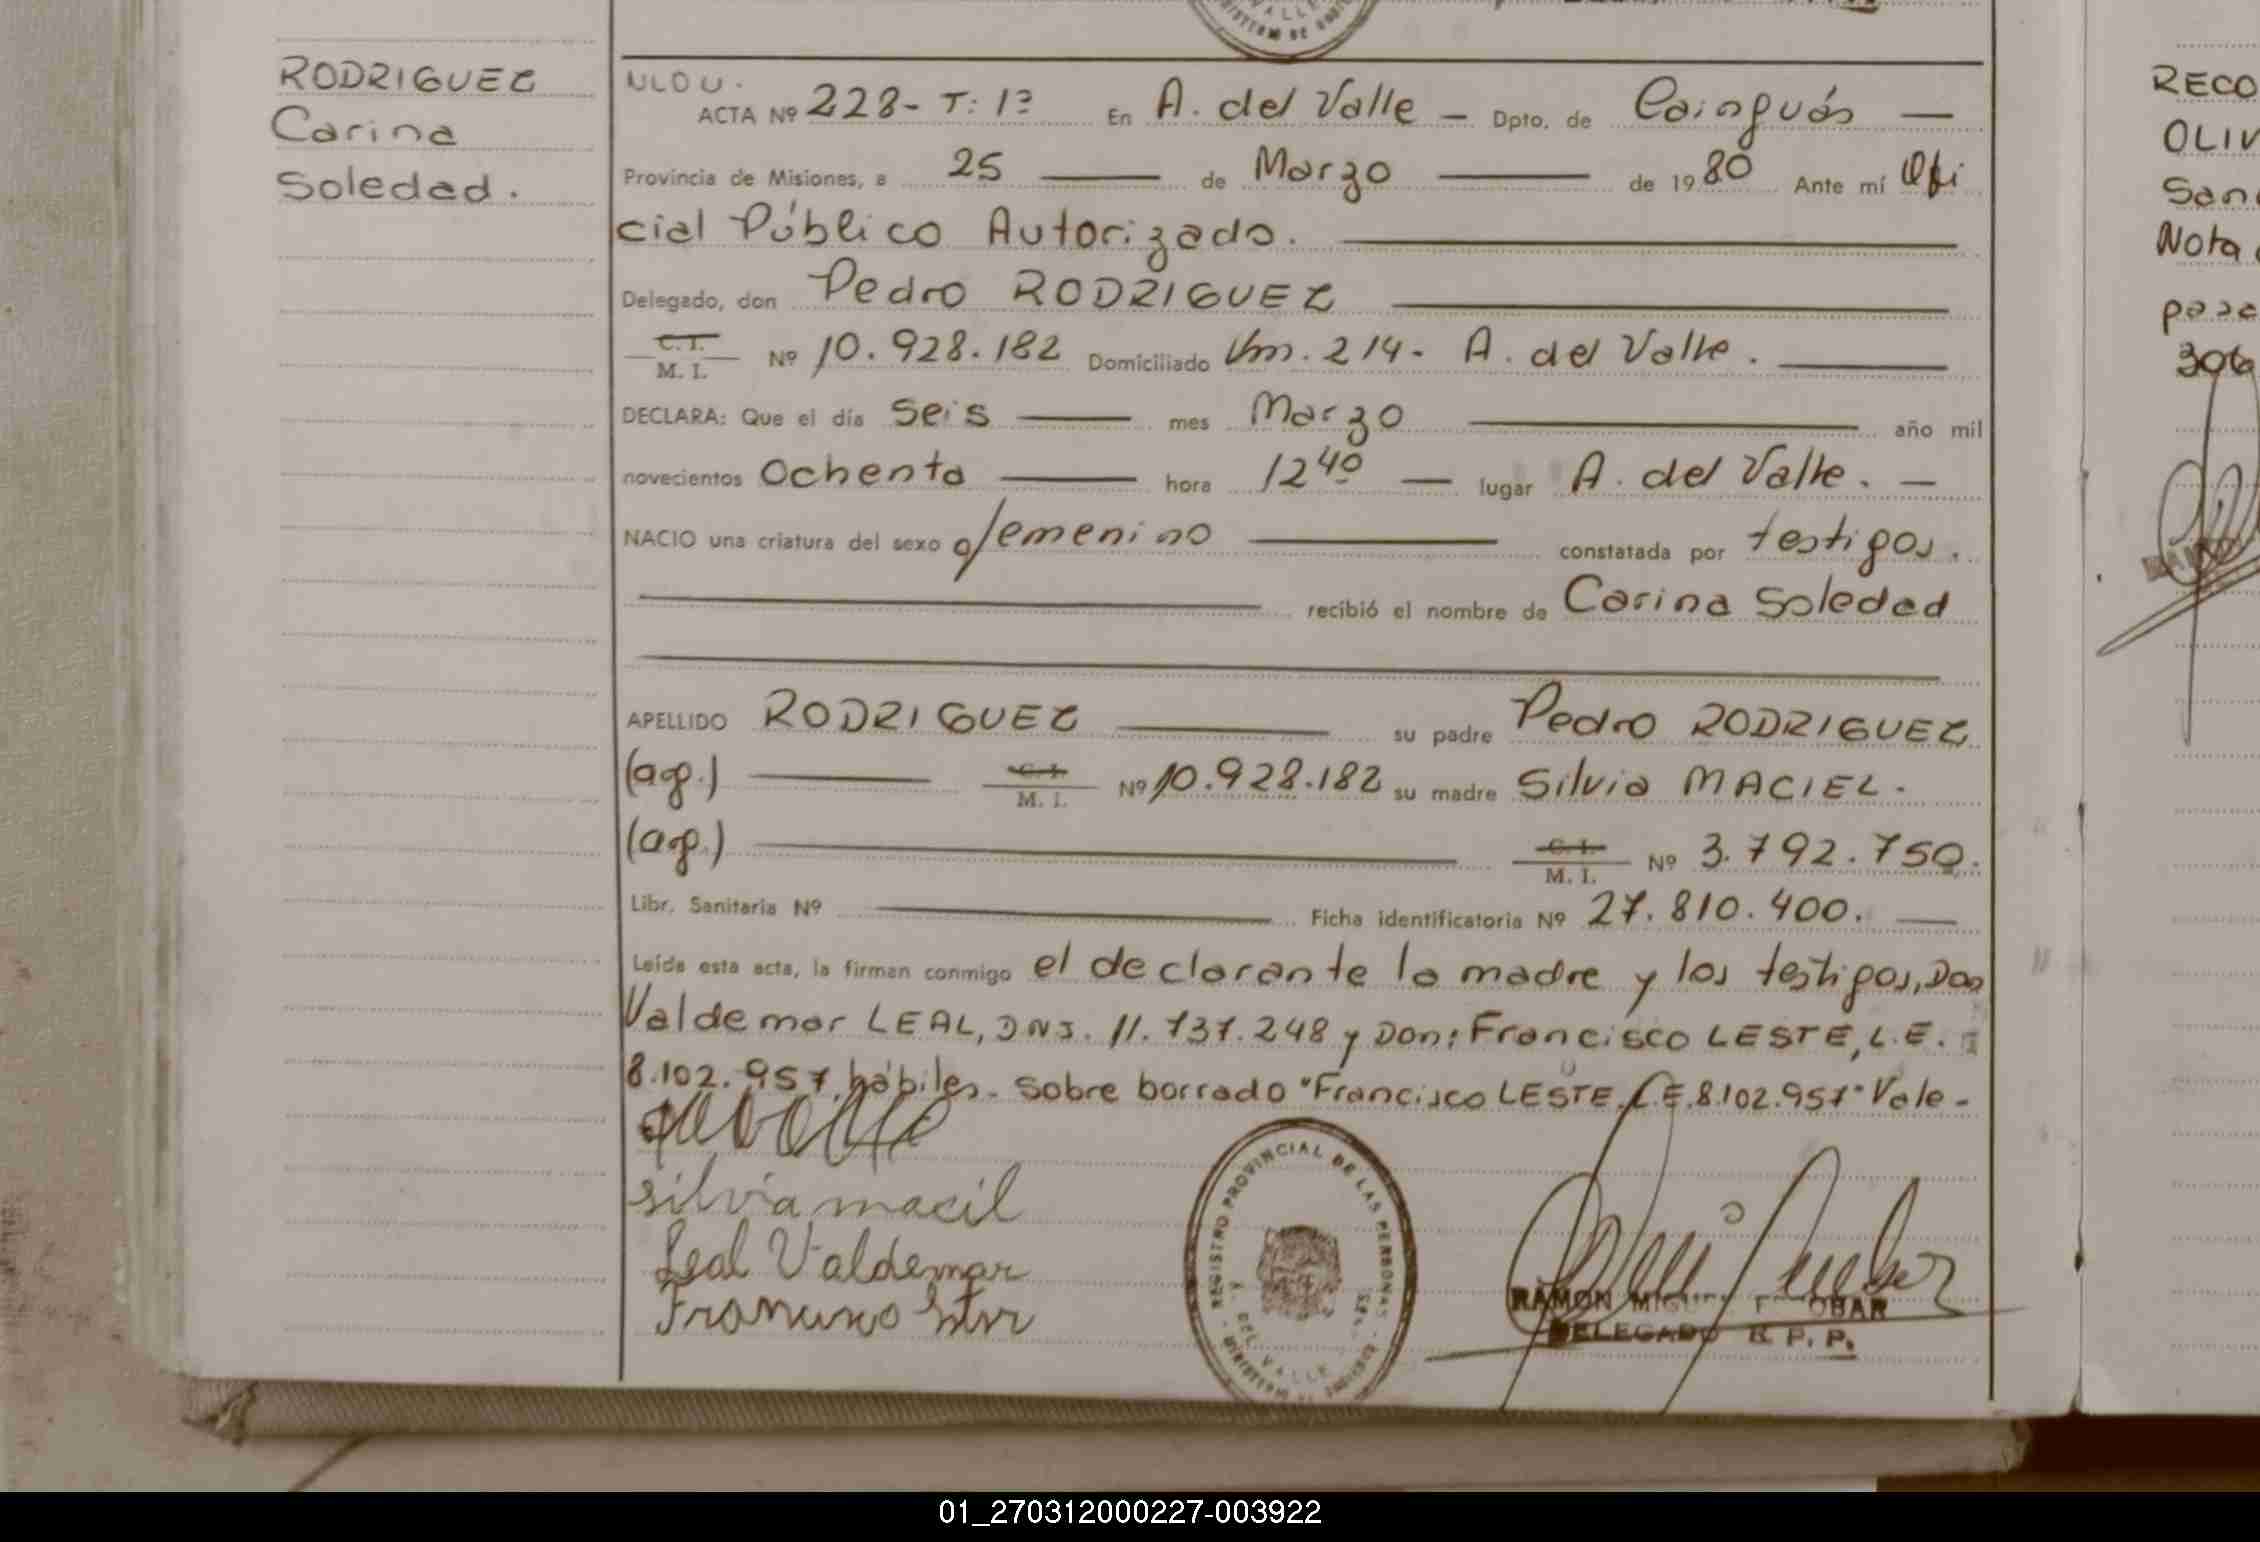 RODRIGUEZ
Carina
Soledad.
ACTA Nº 228- T: 1º En A. del Valle - Dpto. de Cainguás -
Provincia de Misiones, a 25 de Marzo de 1980 Ante mí Ofi
cial Público Autorizado.
Delegado, don Pedro RODRIGUEZ
C. I.
M. I. Nº 10.928.182 Domiciliado Km. 214- A. del Valle.
DECLARA: Que el día Seis mes Marzo año mil
novecientos Ochenta hora 12 40 - lugar A. del Valle. -
NACIO una criatura del sexo femenino constatada por testigos.
recibió el nombre de Carina Soledad
APELLIDO RODRIGUEZ su padre Pedro RODRIGUEZ
(ag.) C. I.
M. I. Nº 10.928.182 su madre Silvia MACIEL.
(ag.) C. I.
M. I. Nº 3.792.750.
Libr. Sanitaria Nº Ficha identificatoria Nº 27.810.400.
Leída esta acta, la firman conmigo el declarante la madre y los testigos, Don
Valdemar LEAL, DNI. 11.737.248 y Don: Francisco LESTE, L.E.
8.102.957, hábiles. Sobre borrado "Francisco LESTE L.E. 8.102.957" Vale-
silvia macil
Leal Valdemar
REGISTRO PROVINCIAL DE LAS PERSONAS
DEL VALLE
RAMON MIGUEL
DELEGADO R. P. P.
RECO
OLIV
San
Nota
306
01_270312000227-003922